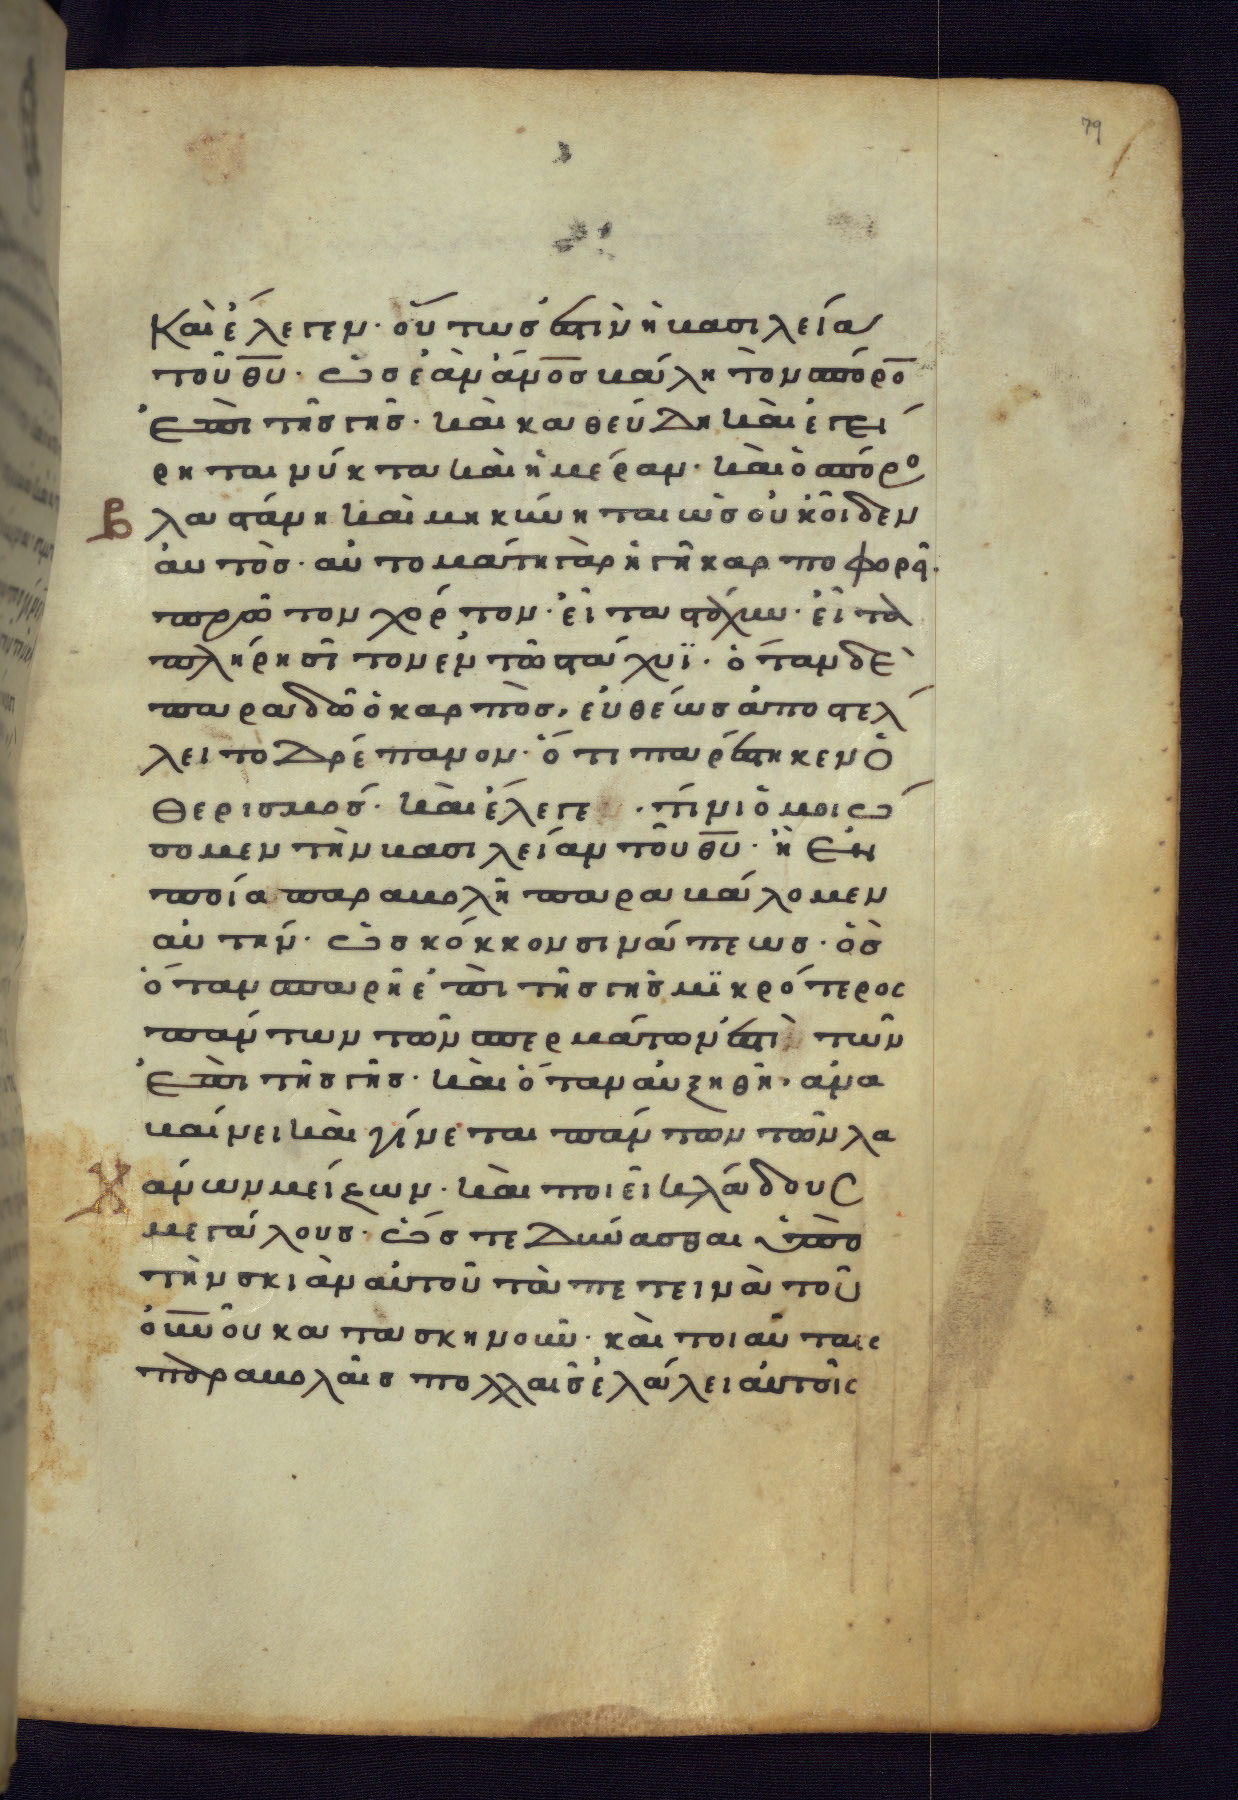 79
Καὶ ἔλεγεν· οὕτως ἐστὶν ἡ βασιλεία
τοῦ θυ̅· ὡς ἐὰν ἀν̅ο̅ς βάλη τὸν σπόρο̅
ἐπὶ τῆς γῆς· καὶ καθεύδη καὶ ἐγεί
ρηται νύκτα καὶ ἡμέραν· καὶ ὁ σπόρο
βλαστάνη καὶ μηκύνηται ὡς οὐκ οἶδεν
ἀυτὸς· αὐτομάτη γὰρ ἡ γῆ καρποφορεῖ·
πρῶτον χόρτον· εἶτα στάχυν· εἶτα
πλήρη σῖτον ἐν τῶ στάχυϊ· ὅταν δὲ
παραδῶ ὁ καρπὸς, εὐθέως ἀποστέλ
λει το δρέπανον· ὅτι παρέστηκεν ὁ
θερισμός· καὶ ἔλεγε · τίνι ὁμοιώ
σομεν τὴν βασιλείαν τοῦ θυ̅· ἢ ἐν
ποία παραβολῆ παραβάλομεν
αὐτήν· ὡς κόκκον σινάπεως· ὃς
ὅταν σπαρῆ ἐπὶ τῆς γῆς μϊκρότερος
πάντων τῶν σπερμάτων ἐστὶ τῶν
ἐπὶ τῆς γῆς· καὶ ὅταν αὐξηθῆ, ἀνα
βαίνει καὶ γίνεται πάντων τῶν λα
χάνων μείζων· καὶ ποιεῖ κλάδους
μεγάλους· ὥστε δύνασθαι ὑπὸ
τὴν σκιὰν αὐτοῦ τὰ πετεινὰ τοῦ
ουν̅οῦ κατασκηνοῦν· καὶ τοιαύταις
παραβολαῖς πολλαῖς ἐλάλει αὐτοῖς